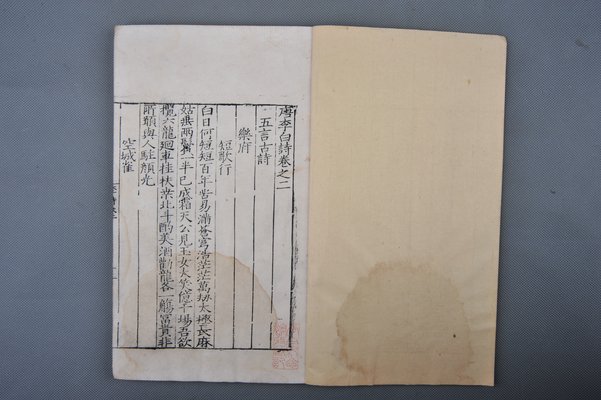 唐李白詩卷之二
五言古詩
樂府
短歌行
白日何短短百年苦易滿蒼穹浩茫茫萬劫太極長麻
姑垂兩鬢一半已成霜天公見玉女大笑億千場吾欲
攬六龍迴車挂扶桒北斗酌美酒勸龍各一觴富貴非
所願與人駐顏光
空城雀